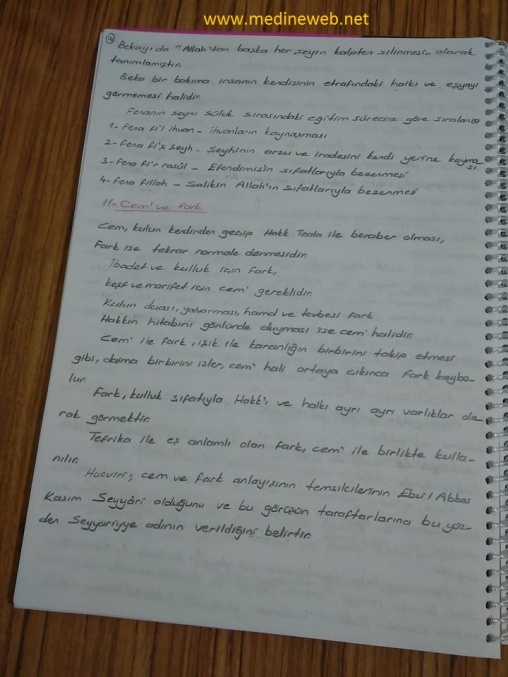 www.medineweb.net
Bekayı da "Allah'tan başka her şeyin kalpten silinmesi" olarak
tanımlamıştır.
Beka bir bakıma insanın kendisinin etrafındaki halkı ve eşyayı
görmemesi halidir.
Fenanın seyri sülük sırasındaki eğitim sürecine göre sıralanışı
1- Fena fi'l ihvan - ihvanların kaynaşması
2- Fena fi'ş şeyh - Şeyhinin arzu ve iradesini kendi yerine koyma
sı
3- Fena fi'r rasûl - Efendimizin sıfatlarıyla bezenmesi
4- Fena fillah - Salikin Allah'ın sıfatlarıyla bezenmesi
11- Cem' ve Fark
Cem, kulun kendinden geçip Hakk Teala ile beraber olması,
Fark ise tekrar normale dönmesidir.
İbadet ve kulluk için Fark,
keşf ve marifet için cem' gereklidir.
Kulun duası, yakarması, hamd ve tevbesi fark
Hakkın hitabını gönlünde duyması ise cem' halidir.
Cem' ile fark, ışık ile karanlığın birbirini takip etmesi
gibi, daima birbirini izler, cem' hali ortaya çıkınca fark kaybo-
lur.
Fark, kulluk sıfatıyla Hakk'ı ve halkı ayrı ayrı varlıklar ola-
rak görmektir.
Tefrika ile eş anlamlı olan fark, cem' ile birlikte kulla-
nılır.
Hucviri, cem ve fark anlayışının temsilcilerinin Ebu'l Abbas
Kasım Seyyâri olduğunu ve bu görüşün taraftarlarına bu yüz-
den Seyyariyye adının verildiğini belirtir.